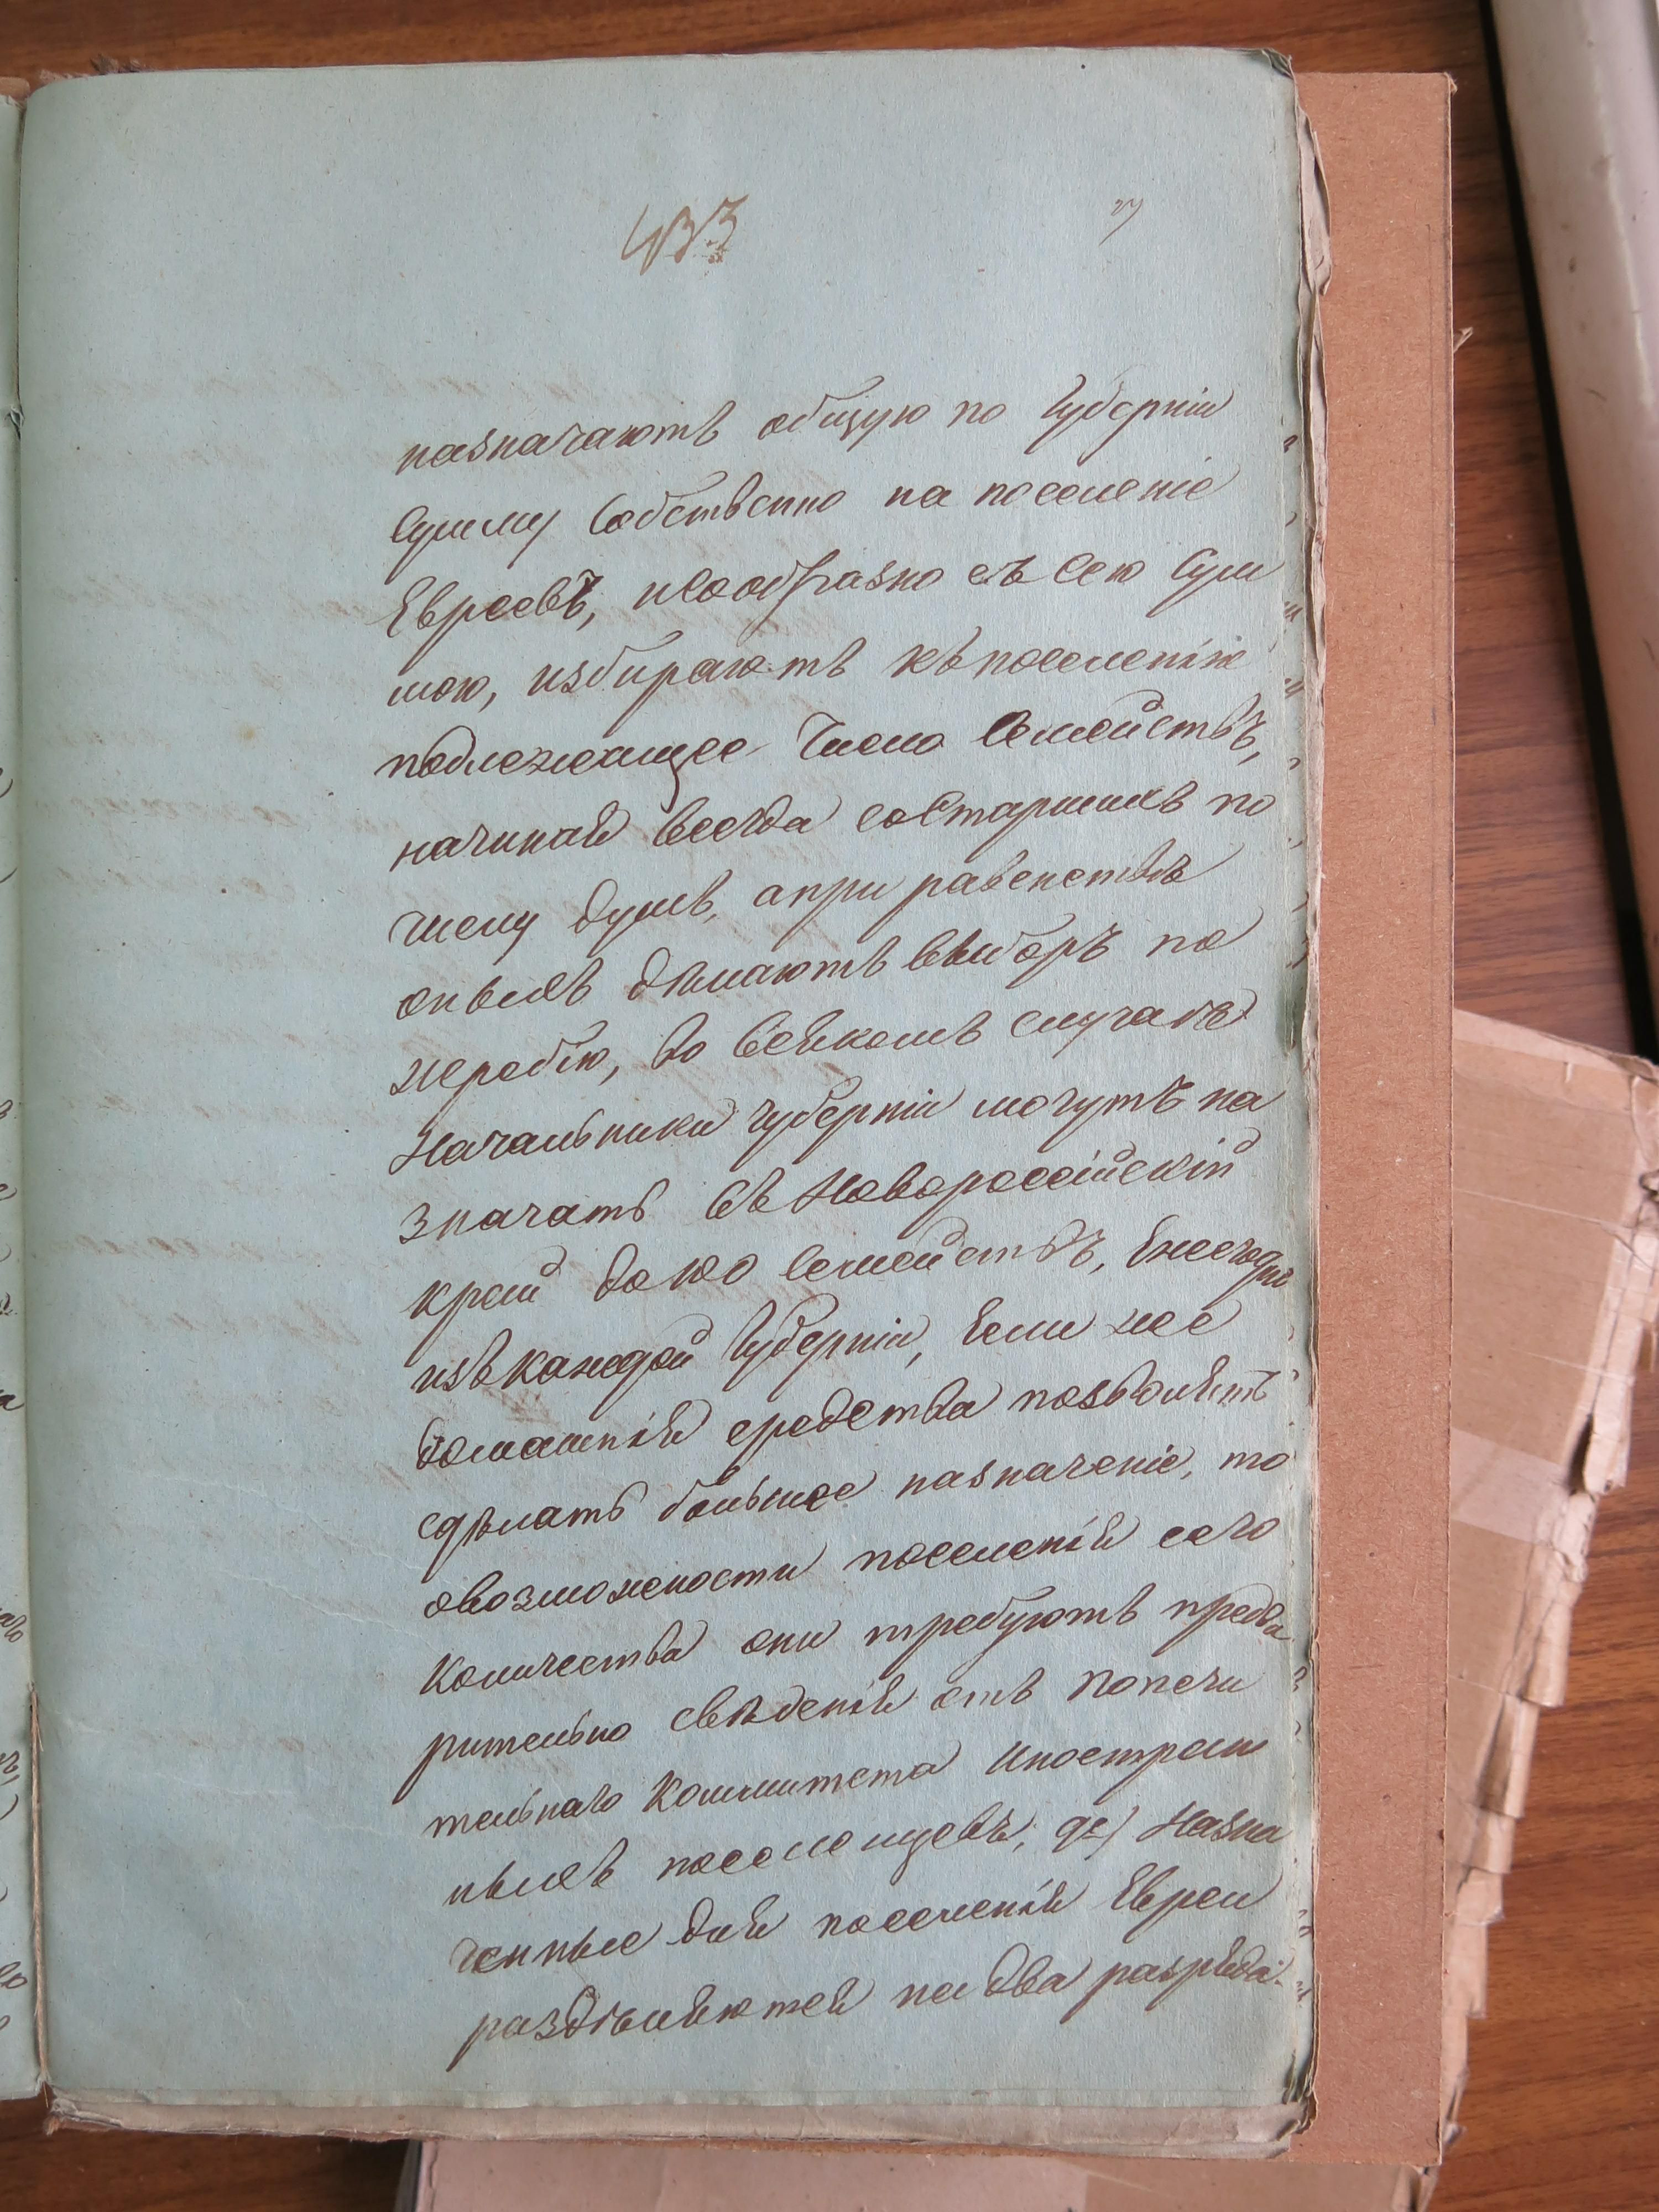 433
назначаютъ общую по Губерніи
Сумму Собственно на поселеніе
Евреевъ, исообразно съ Сею Сум
мою, избираютъ къ поселенію
подлежащее Число Семействъ,
начиная всегда со Старшихъ по
числу душъ, а при равенствѣ
оныхъ дѣлаютъ выборъ по
жеребію, во всякомъ случаѣ
Начальники губерніи могутъ на
значать въ Новороссійскій
край до 100 Семействъ, Ежегодно
изъ каждой Губерніи, Если же
домашнія средства позволятъ
сдѣлать большее назначеніе, то
о возможности поселенія сего
Количества они требуютъ предва
рительно свѣденія отъ Попечи
тельнаго Коммитета Иностран
ныхъ поселенцевъ, Назна
ченные для поселенія Евреи
раздѣляются на два разряда.